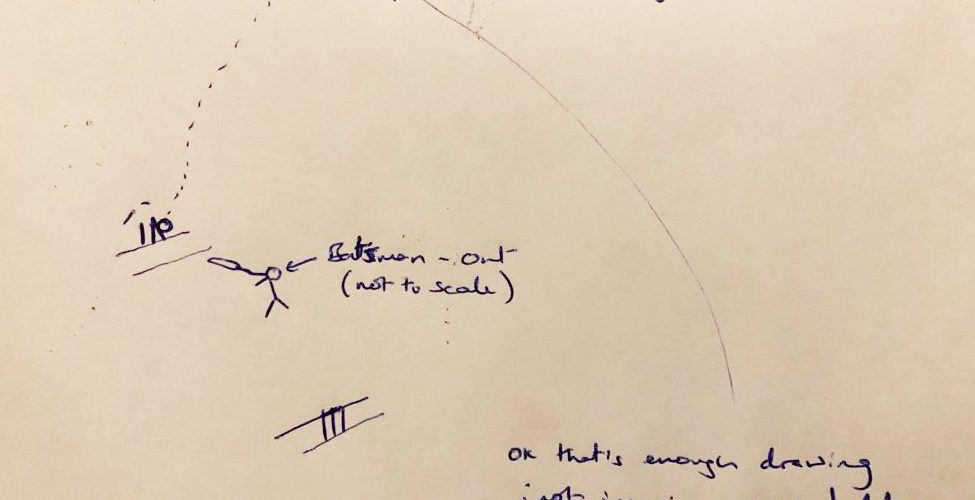 Batsman - out
(not to scale)
ok that's enough drawing